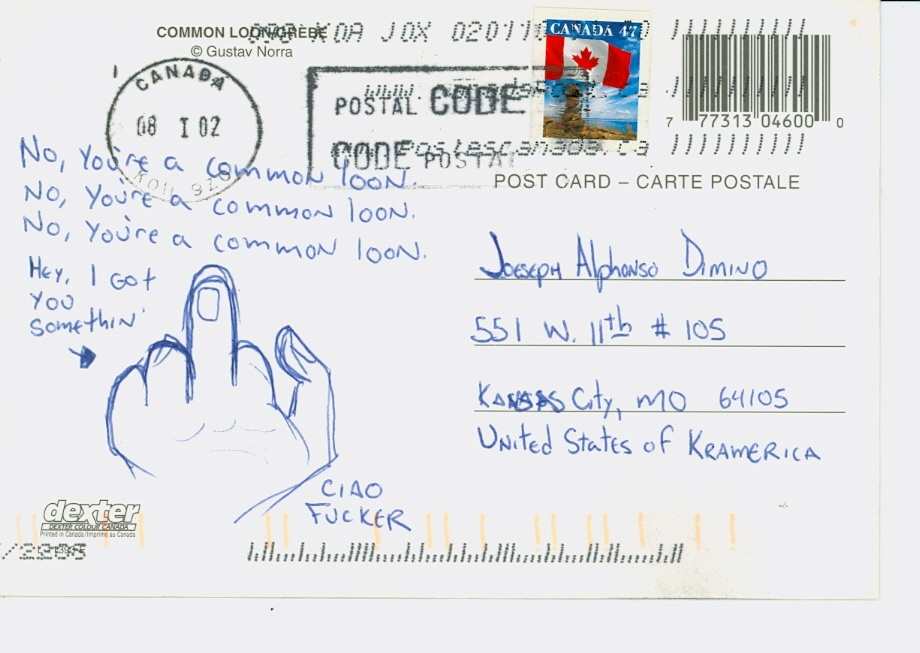 COMMON LOON/GREBE
© Gustav Norra
K0A J0X 02011
CANADA 47
CANADA
08 I 02
POSTAL CODE
CODE POSTAL
7 77313 04600 0
POST CARD – CARTE POSTALE
No, You're a common loon.
No, You're a common loon.
No, You're a common loon.
Hey, I Got
You
Somethin'
CIAO
FUCKER
Joeseph Alphonso Dimino
551 W. 11th # 105
Kansas City, MO 64105
United States of Kramerica
dexter
DEXTER COLOUR CANADA
Printed in Canada/Imprimé au Canada